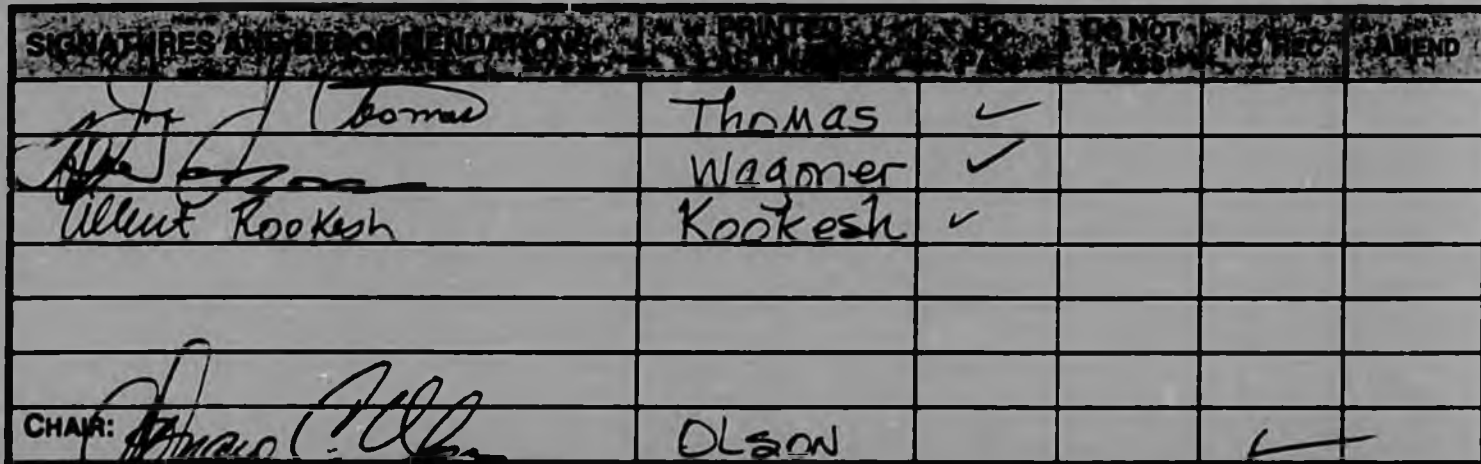 SIGNATURES AND RECOMMENDATIONS PRINTED LAST NAME DO PASS DO NOT PASS NO REC AMEND
Thomas Thomas ✓
Wagoner ✓
Albert Kookesh Kookesh ✓
CHAIR: OLSON ✓